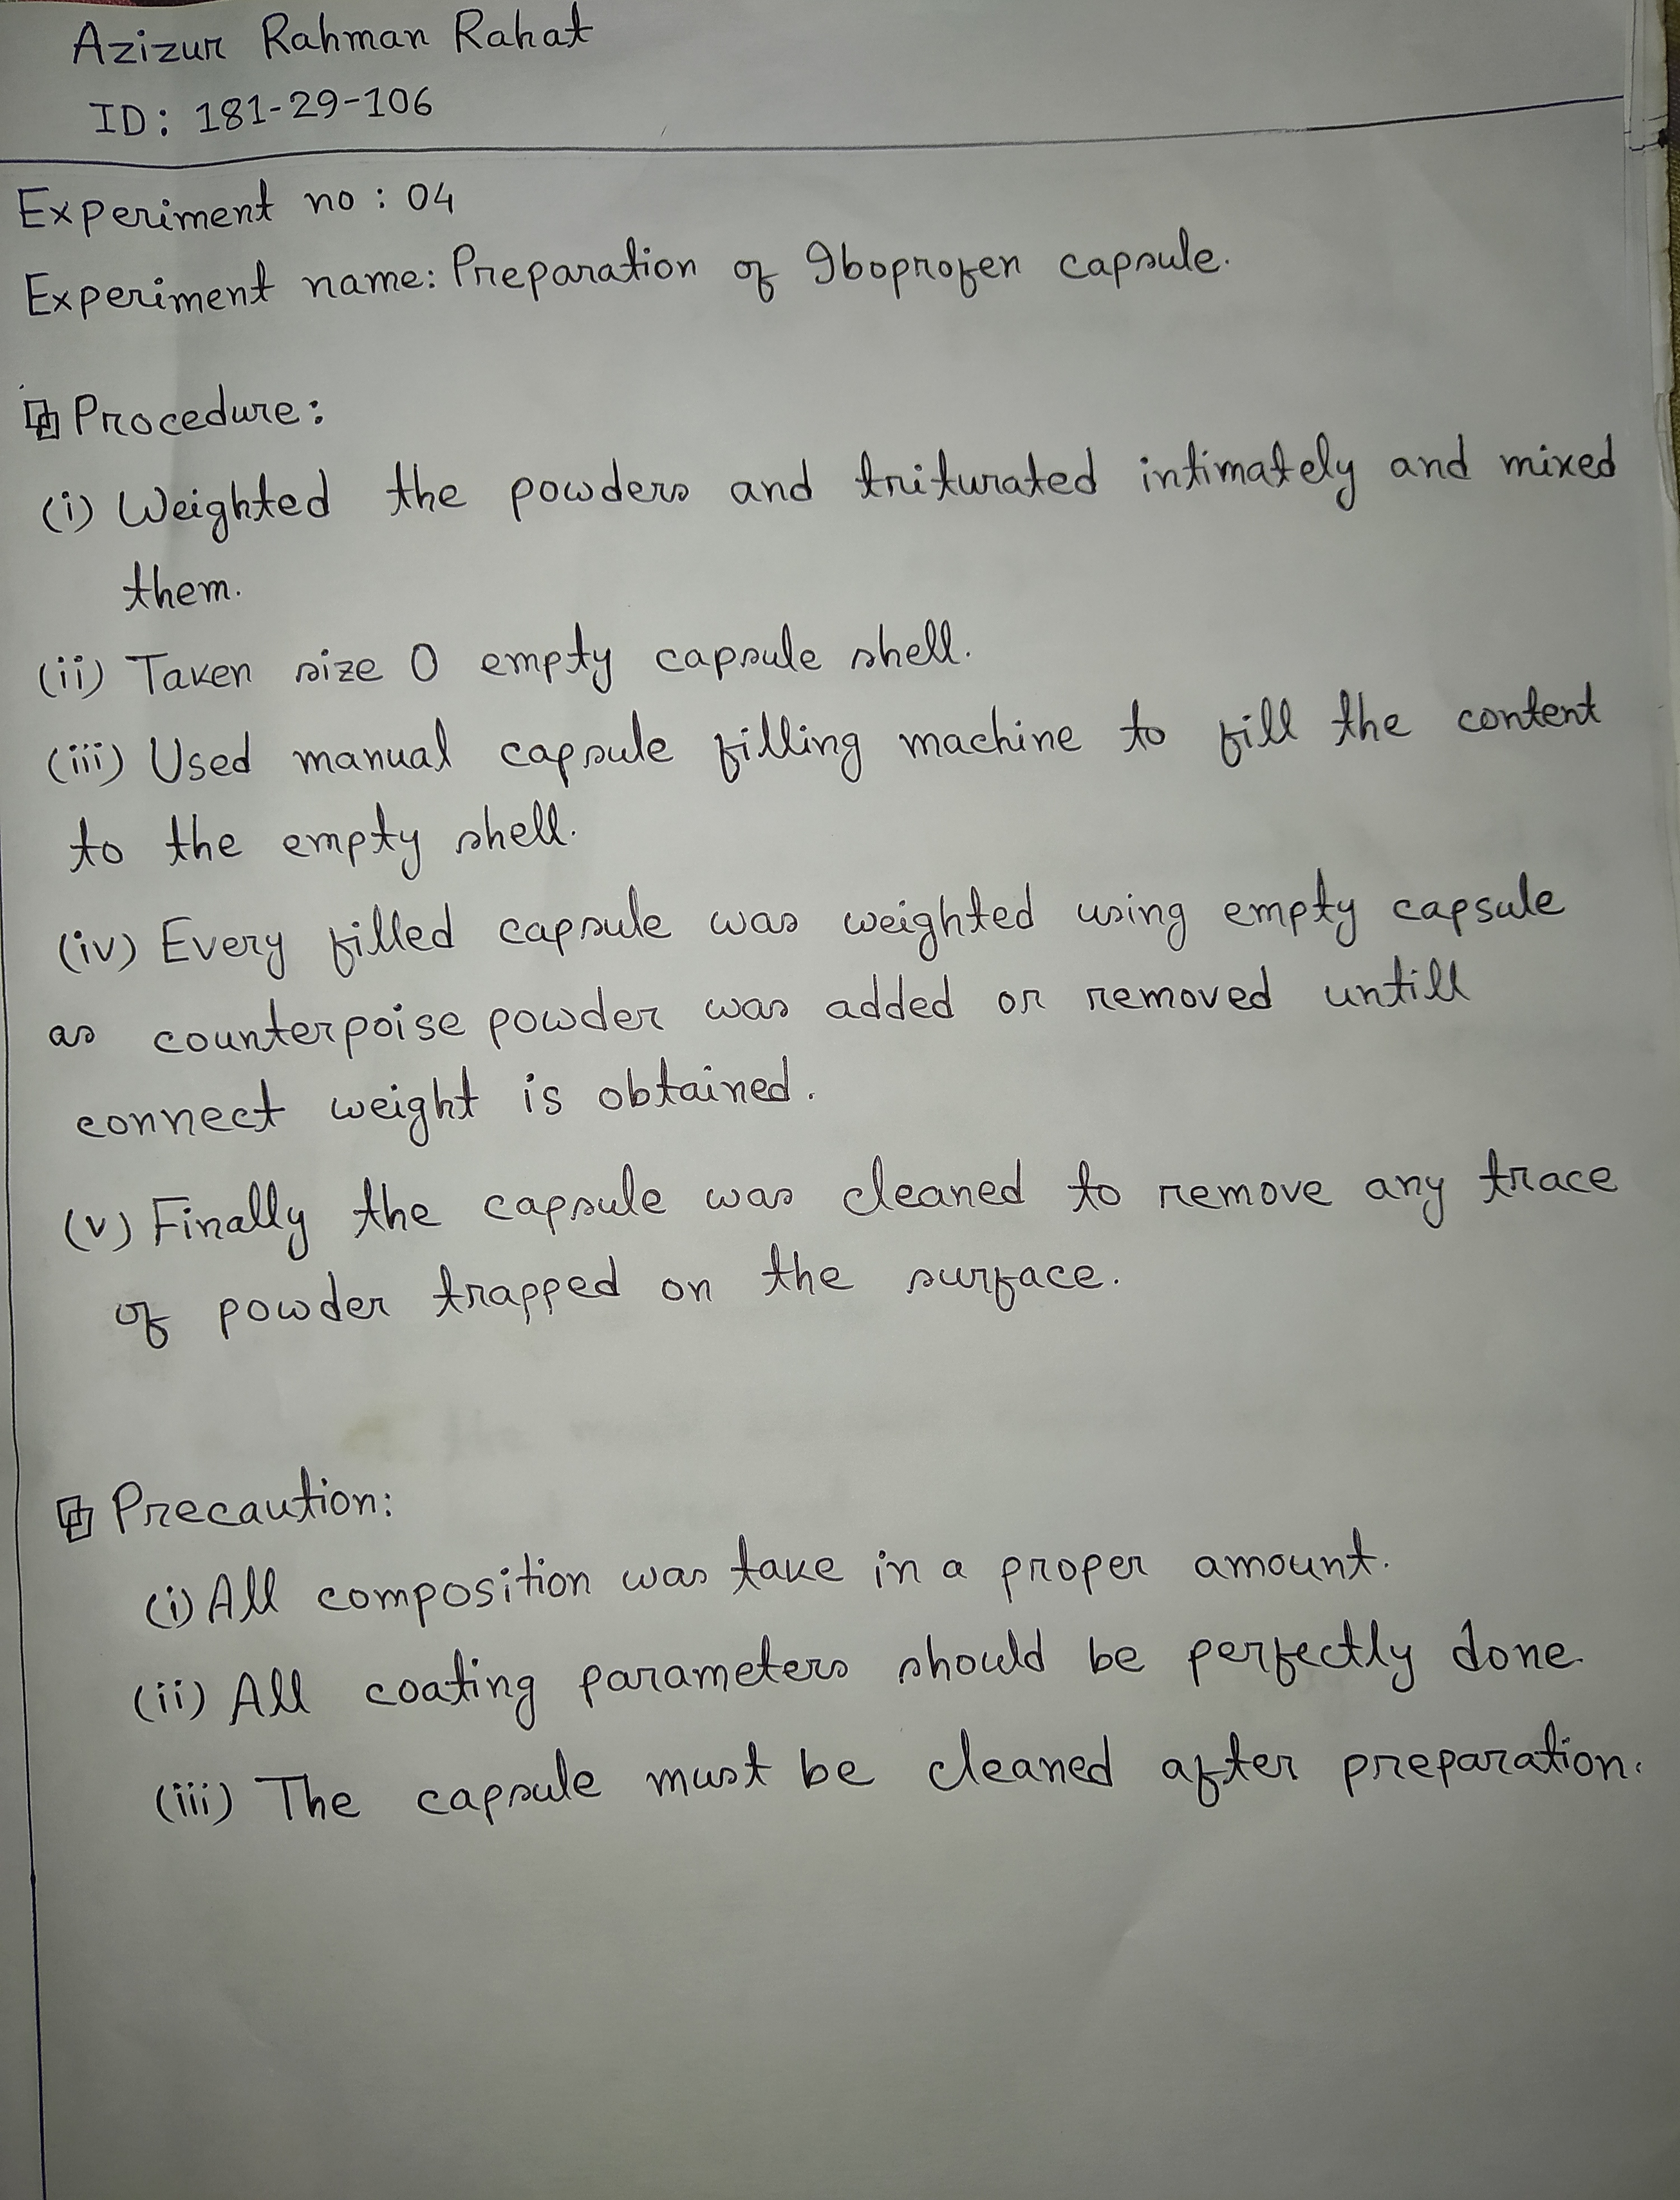 Azizur Rahman Rahat
ID: 181-29-106
Experiment no : 04
Experiment name: Preparation of Iboprofen capsule.
Procedure:
(i) Weighted the powders and triturated intimately and mixed
them.
(ii) Taken size 0 empty capsule shell.
(iii) Used manual capsule filling machine to fill the content
to the empty shell.
(iv) Every filled capsule was weighted using empty capsule
as counterpoise powder was added or removed untill
correct weight is obtained.
(v) Finally the capsule was cleaned to remove any trace
of powder trapped on the surface.
Precaution:
(i) All composition was take in a proper amount.
(ii) All coating parameters should be perfectly done.
(iii) The capsule must be cleaned after preparation.